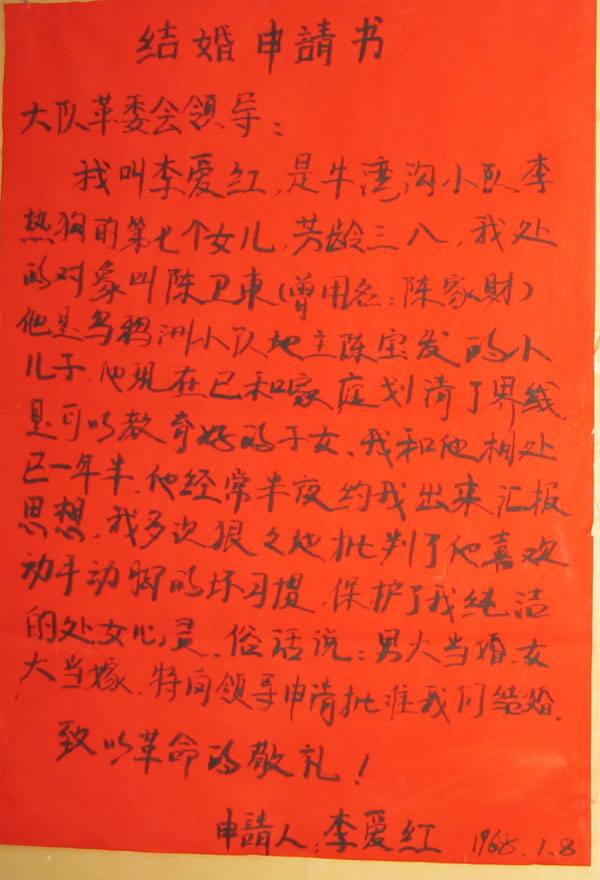 结婚申請书
大队革委会领导：
我叫李爱红，是牛湾沟小队李
热狗的第七个女儿，芳龄三八，我处
的对象叫陈卫東(曾用名：陈家财)
他是乌鸦洲小队地主陈宝发的小
儿子，他現在已和家庭划清了界线
是可以教育好的子女、我和他相处
已一年半，他经常半夜约我出来汇报
思想，我多次狠々地批判了他喜欢
动手动脚的坏习惯，保护了我纯洁
的处女心灵，俗话说：男大当婚，女
大当嫁，特向领导申请批准我们结婚，
致以革命的敬礼！
申請人：李爱红 1968.1.8